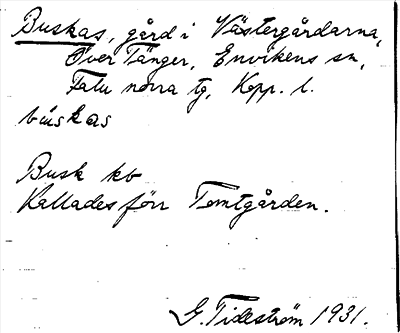 Buskas, gård i Västergårdarna,
Över Tänger, Envikens sn,
Falu norra tg, Kopp. l.
búskas
Busk kb
Kallades förr Tomtgården.
G. Tideström 1931.